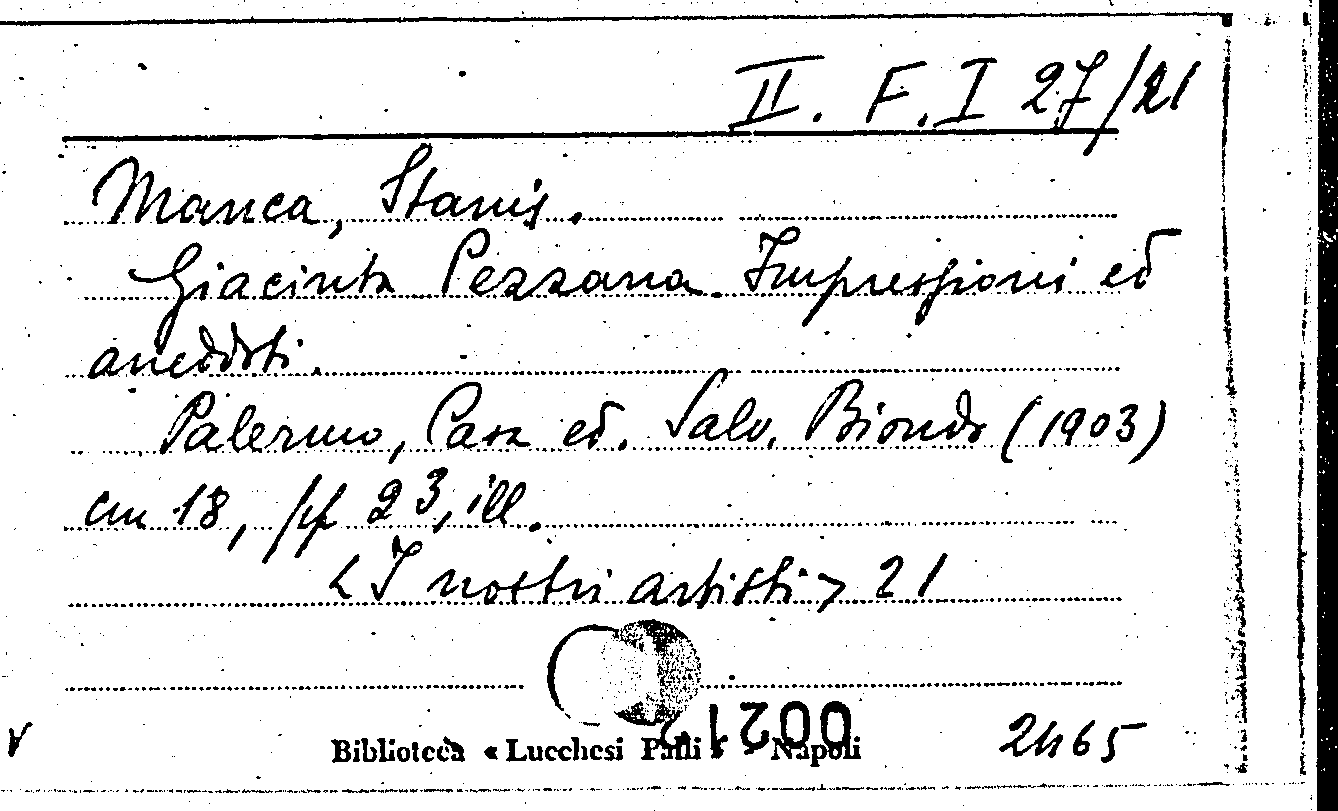 II. F. I 27/21
Manca, Stanis.
Giacinta Pezzana. Impressioni ed
aneddoti.
Palermo, Casa ed. Salv. Biondo (1903)
cm 18, pp 23, ill.
<I nostri artisti> 21
Biblioteca « Lucchesi Palli » - Napoli
2465
V